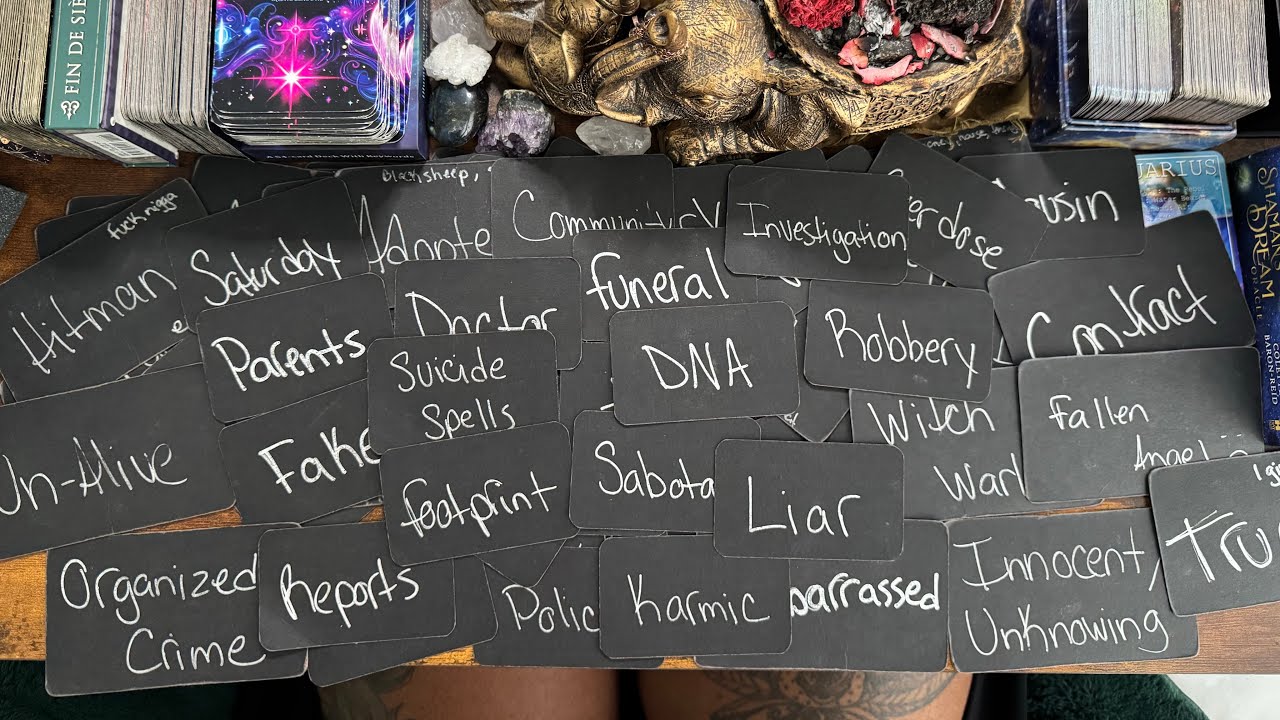 FIN DE SIÈ
Blacksheep,
Fuck nigga
Hitman
Saturday
Adopte
Community
Investigation
erdose
usin
UARIUS
SHAMAN
DREAM
ORACLE
COLETTE
BARON-REID
Parents
Doctor
funeral
DNA
Robbery
Contract
Un-Alive
Fake
Suicide
Spells
footprint
Sabota
Liar
Witch
War
Fallen
Angel
Organized
Crime
Reports
Polic
Karmic
barrassed
Innocent/
Unknowing
1 gi
Tru